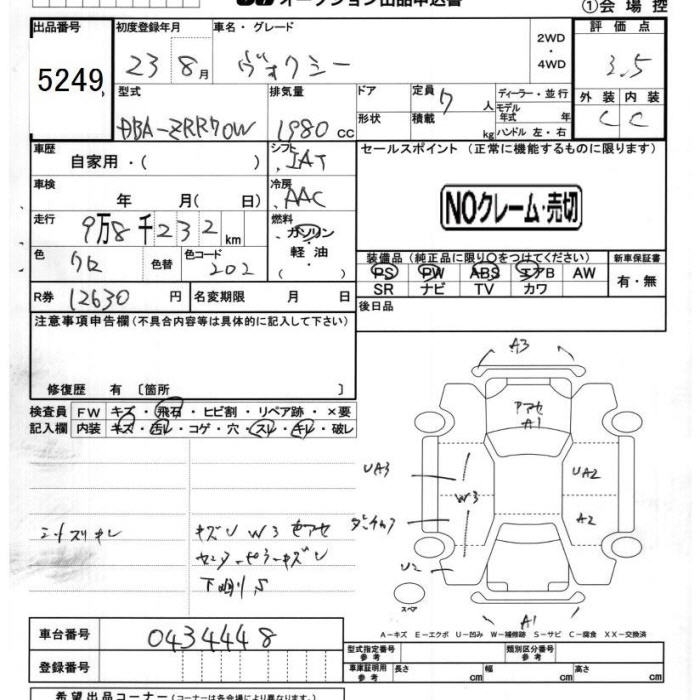 オークション出品申込書 ①会場控
出品番号 初度登録年月 車名・グレード 評価点
5249 23 8月 ヴォクシー 2WD・4WD 3.5
型式 排気量 ドア 定員 7人 ディーラー・並行 外装 内装
DBA-ZRR70W 1980cc 形状 積載 kg モデル年式 年 ハンドル 左・右 C C
車歴 自家用・( ) シフト IAT セールスポイント (正常に機能するものに限ります)
車検 年 月( 日) 冷房 AAC NOクレーム・売切
走行 9万8千232km 燃料 ガソリン・軽油・( )
色 クロ 色替 色コード 202 装備品 (純正品に限り○をつけてください) 新車保証書
PS PW ABS エアB AW 有・無
R券 12630円 名変期限 月 日 SR ナビ TV カワ
注意事項申告欄(不具合内容等は具体的に記入して下さい) 後日品
修復歴 有〔箇所 〕
検査員 FW キズ・飛石・ヒビ割・リペア跡・×要
記入欄 内装 キズ・汚レ・コゲ・穴・スレ・キレ・破レ
A3
アアセ
A1
UA3 UA2
W3
A2
U2
スペア
A1
シートスリキレ キズU W3 色アセ
下廻りS
A-キズ E-エクボ U-凹み W-補修跡 S-サビ C-腐食 XX-交換済
車台番号 0434448 型式指定番号 参考 類別区分番号 参考
登録番号 車庫証明用 参考 長さ cm 幅 cm 高さ cm
希望出品コーナー(コーナーは各会場により異なります)